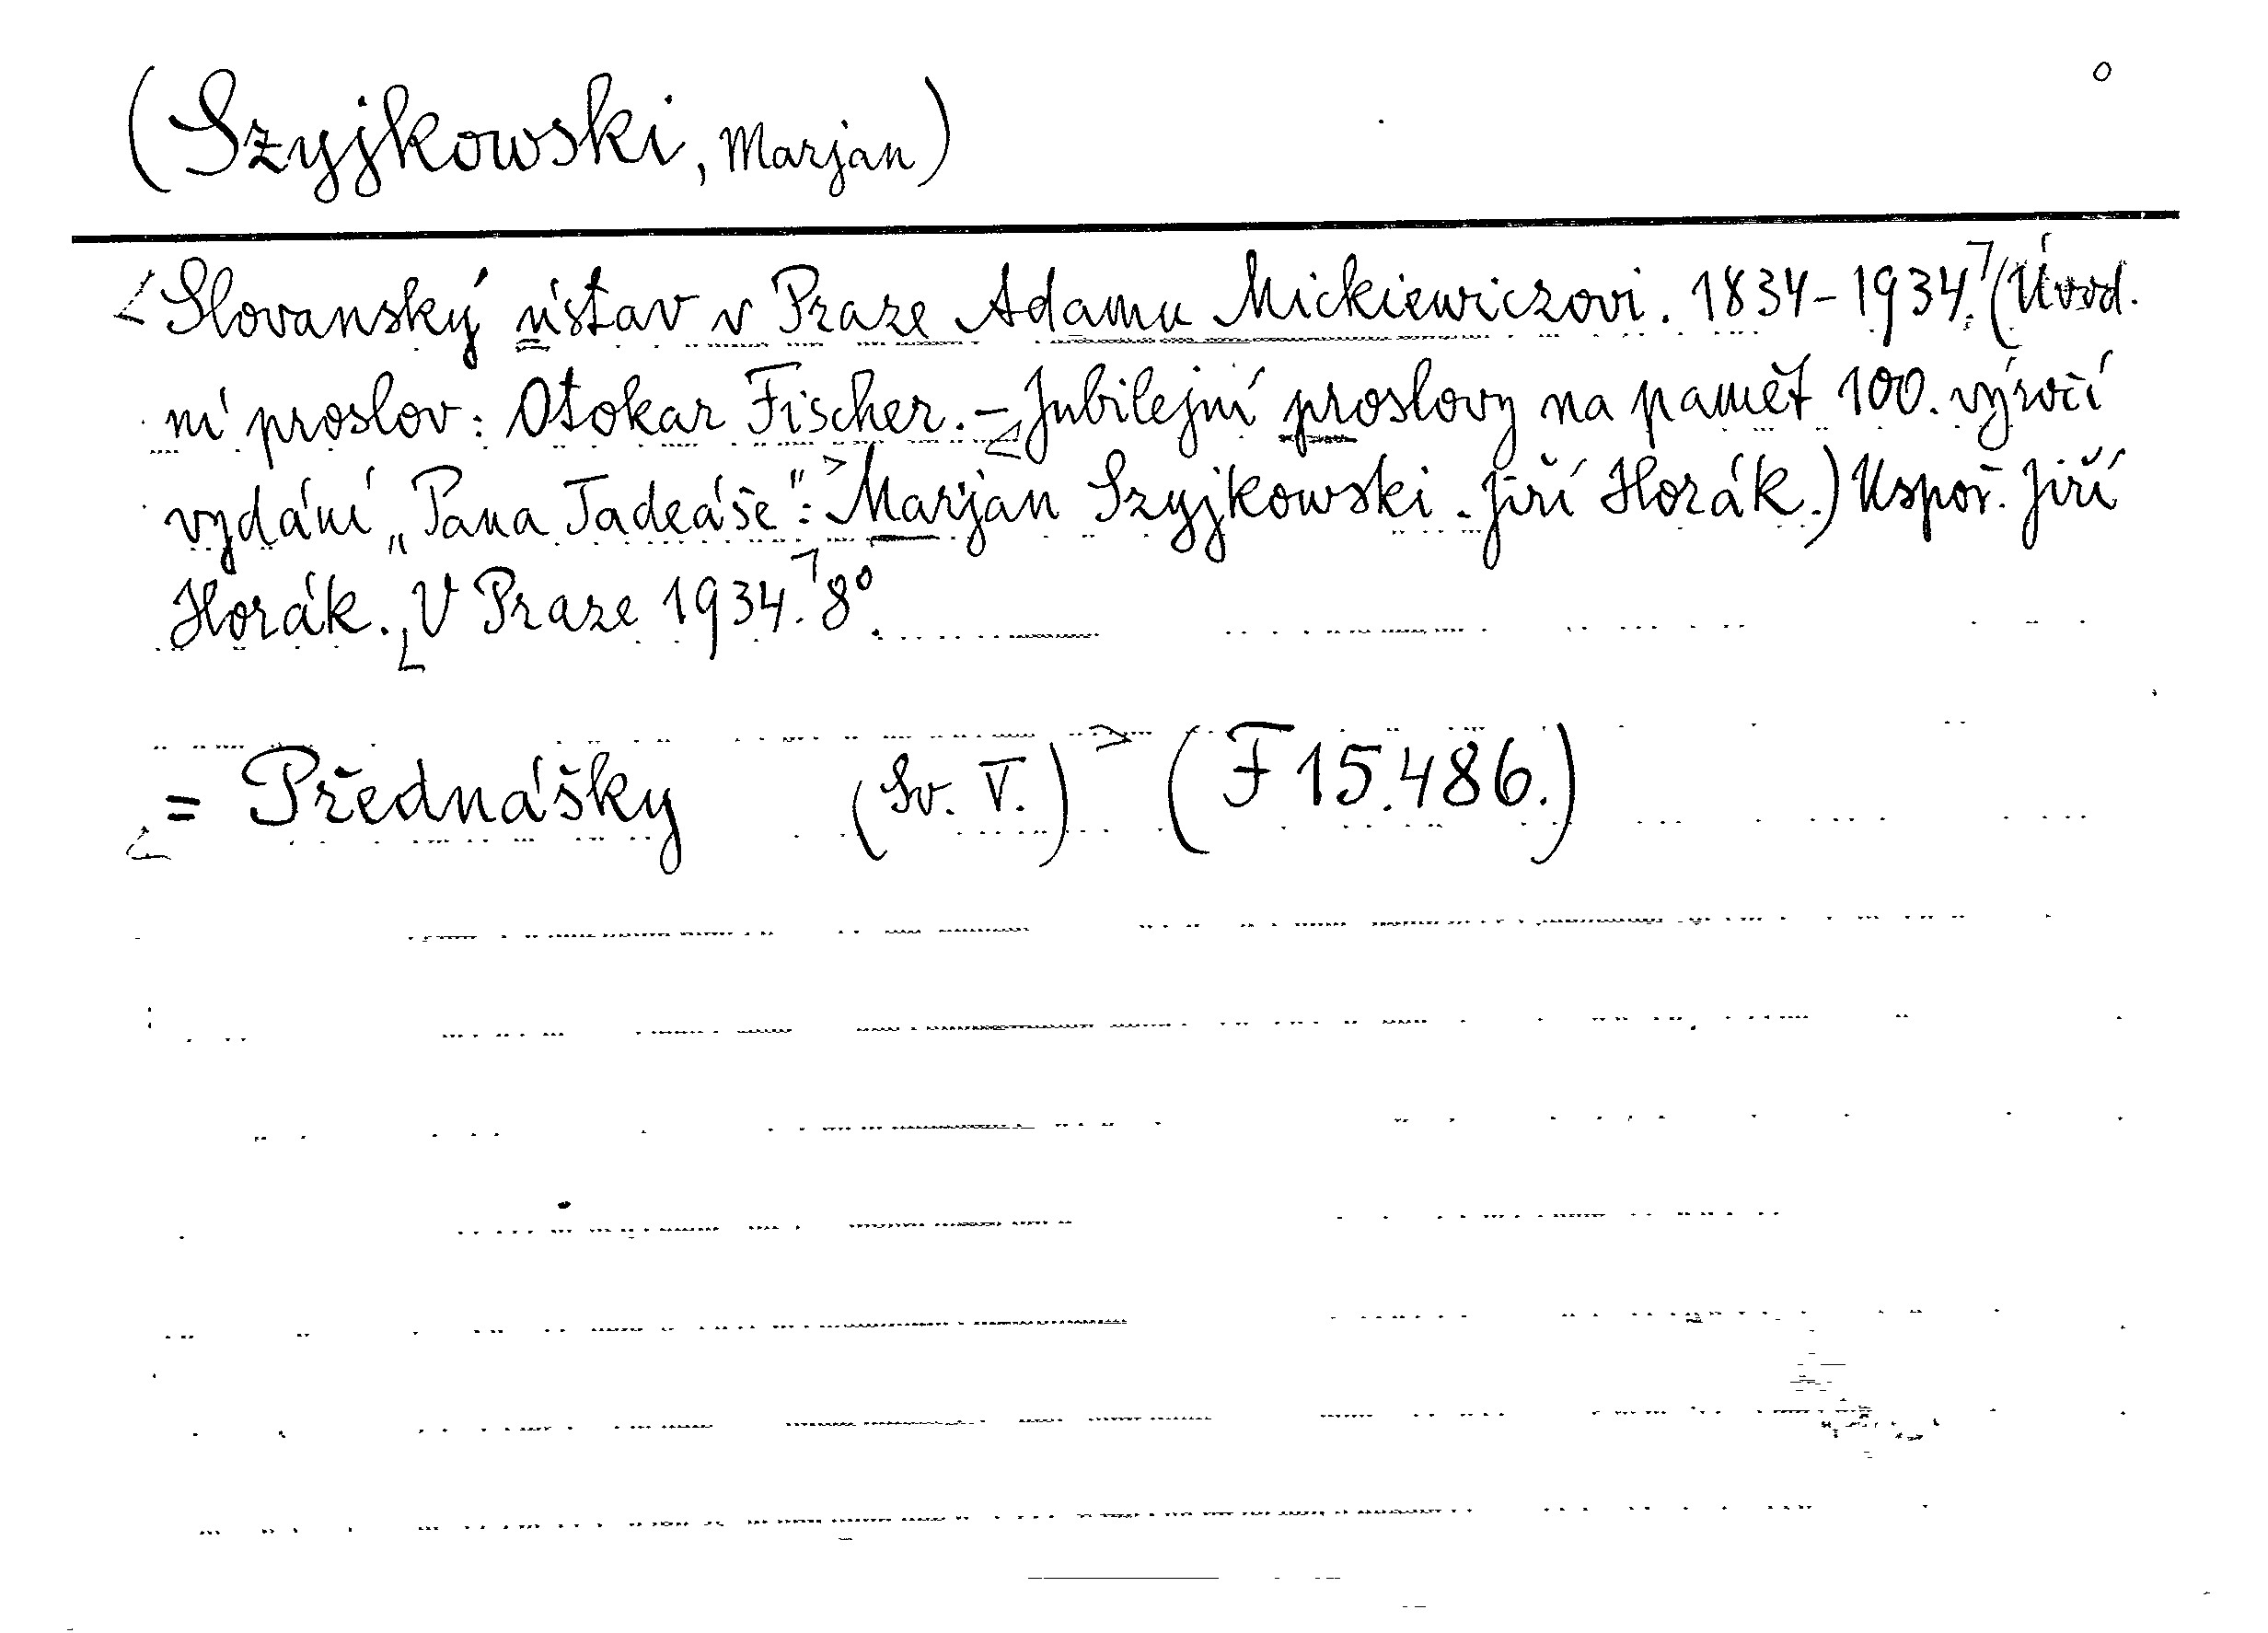 (Szyjkowski, Marjan)
Slovanský ústav v Praze Adamu Mickiewiczovi. 1834-1934. (Úvod.
ní proslov: Otokar Fischer. - Jubilejní proslovy na paměť 100. výročí
vydání „Pana Tadeáše": Marjan Szyjkowski. Jiří Horák.) Uspoř. Jiří
Horák. V Praze 1934. 8°.
= Přednášky (Sv. V.) (F 15.486.)